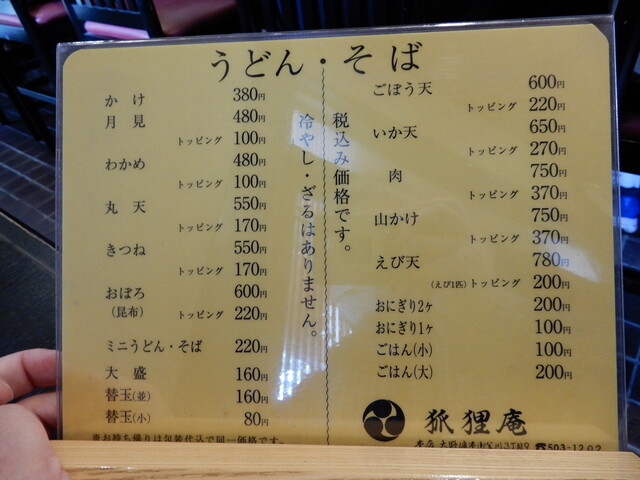 うどん・そば
かけ 380円
月見 480円
トッピング 100円
わかめ 480円
トッピング 100円
丸天 550円
トッピング 170円
きつね 550円
トッピング 170円
おぼろ 600円
(昆布) トッピング 220円
ミニうどん・そば 220円
大盛 160円
替玉(並) 160円
替玉(小) 80円
税込み価格です。
冷やし・ざるはありません。
ごぼう天 600円
トッピング 220円
いか天 650円
トッピング 270円
肉 750円
トッピング 370円
山かけ 750円
トッピング 370円
えび天 780円
(えび1匹)トッピング 200円
おにぎり2ヶ 200円
おにぎり1ヶ 100円
ごはん(小) 100円
ごはん(大) 200円
狐狸庵
☎503-1202